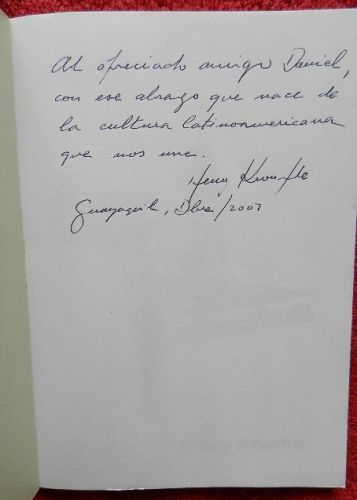 Al apreciado amigo Daniel,
con ese abrazo que nace de
la cultura latinoamericana
que nos une.
Henry Kronfle
Guayaquil, Dbre/2007